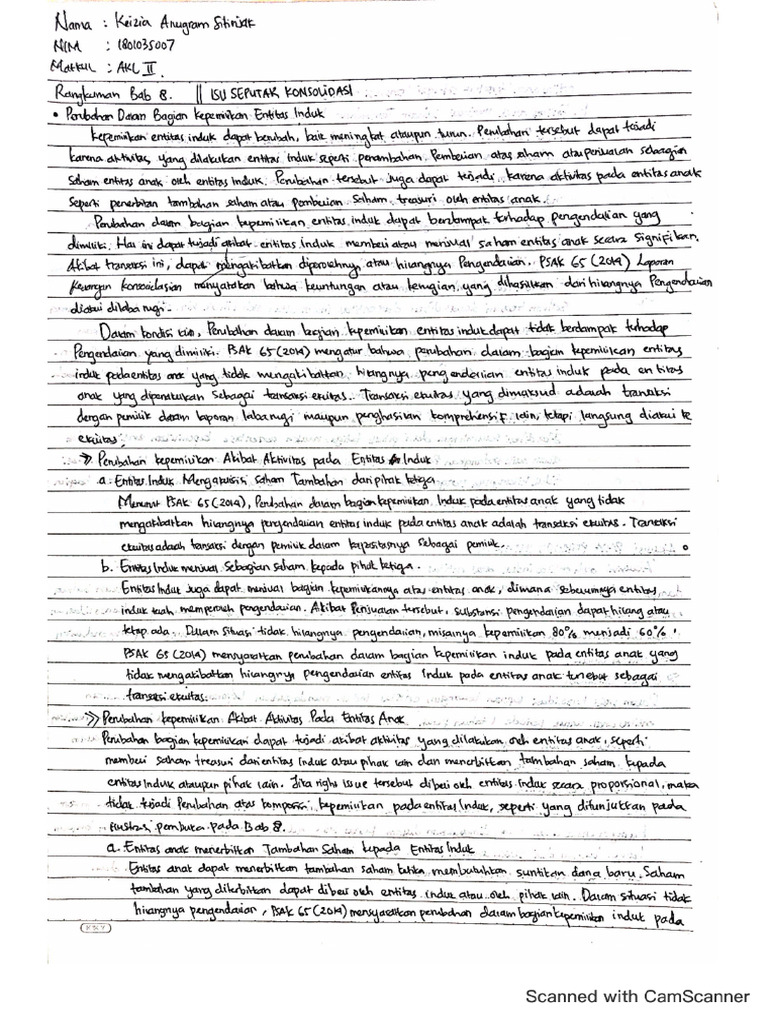 Nama : Keizia Anugram Sitinjak
NIM : 1801035007
Matkul : AKL II
Rangkuman Bab 8. || ISU SEPUTAR KONSOLIDASI
• Perubahan Dalam Bagian Kepemilikan Entitas Induk
Kepemilikan entitas induk dapat berubah, baik meningkat ataupun turun. Perubahan tersebut dapat terjadi
karena aktivitas, yang dilakukan entitas induk seperti penambahan. Pembelian atas saham atau penjualan sebagian
Saham entitas anak oleh entitas induk. Perubahan tersebut juga dapat terjadi, karena aktivitas pada entitas anak
Seperti penerbitan tambahan saham atau pembelian saham, treasuri oleh entitas anak.
Perubahan dalam bagian kepemilikan entitas induk dapat berdampak terhadap pengendalian yang
dimiliki. Hal ini dapat terjadi akibat entitas induk membeli atau menjual saham entitas anak secara signifikan.
Akibat transaksi ini, dapat mengakibatkan diperolehnya atau hilangnya Pengendalian. PSAK 65 (2014) Laporan
Keuangan konsolidasian menyatakan bahwa keuntungan atau kerugian, yang dihasilkan dari hilangnya Pengendalian
diakui dilaba rugi.
Dalam kondisi lain, Perubahan dalam bagian kepemilikan entitas induk dapat tidak berdampak terhadap
Pengendalian yang dimiliki. PSAK 65 (2014) mengatur bahwa perubahan dalam bagian kepemilikan entitas
induk pada entitas anak yang tidak mengakibatkan hilangnya pengendalian entitas induk pada entitas
anak yang diperlakukan sebagai transaksi ekuitas. Transaksi ekuitas yang dimaksud adalah transaksi
dengan pemilik dalam laporan laba rugi maupun penghasilan komprehensif lain, tetapi langsung diakui ke
ekuitas.
>> Perubahan kepemilikan Akibat Aktivitas pada Entitas Induk
a. Entitas Induk Mengakuisisi saham Tambahan dari pihak ketiga
Menurut PSAK 65 (2014), Perubahan dalam bagian kepemilikan Induk pada entitas anak yang tidak
mengakibatkan hilangnya pengendalian entitas induk pada entitas anak adalah transaksi ekuitas. Transaksi
ekuitas adalah transaksi dengan pemilik dalam kapasitasnya sebagai pemilik.
b. Entitas Induk menjual Sebagian saham kepada pihak ketiga.
Entitas Induk juga dapat menjual bagian kepemilikannya atas entitas anak, dimana sebelumnya entitas
induk telah memperoleh pengendalian. Akibat Penjualan tersebut, substansi pengendalian dapat hilang atau
tetap ada. Dalam situasi tidak hilangnya pengendalian, misalnya kepemilikan 80% menjadi 60%.
PSAK 65 (2014) mensyaratkan perubahan dalam bagian kepemilikan induk pada entitas anak yang
tidak mengakibatkan hilangnya pengendalian entitas Induk pada entitas anak tersebut sebagai
transaksi ekuitas.
>> Perubahan kepemilikan Akibat Aktivitas Pada Entitas Anak.
Perubahan bagian kepemilikan dapat terjadi akibat aktivitas yang dilakukan oleh entitas anak, seperti
membeli saham treasuri dari entitas induk atau pihak lain dan menerbitkan tambahan saham kepada
entitas Induk ataupun pihak lain. Jika right issue tersebut dibeli oleh entitas induk secara proporsional, maka
tidak terjadi Perubahan atas komposisi kepemilikan pada entitas Induk, seperti yang ditunjukkan pada
Ilustrasi pembuka pada Bab 8.
a. Entitas anak menerbitkan Tambahan Saham kepada Entitas Induk
Entitas anak dapat menerbitkan tambahan saham ketika membutuhkan suntikan dana baru. Saham
tambahan yang diterbitkan dapat dibeli oleh entitas induk atau oleh pihak lain. Dalam situasi tidak
hilangnya pengendalian, PSAK 65 (2014) mensyaratkan perubahan dalam bagian kepemilikan induk pada
KKY
Scanned with CamScanner